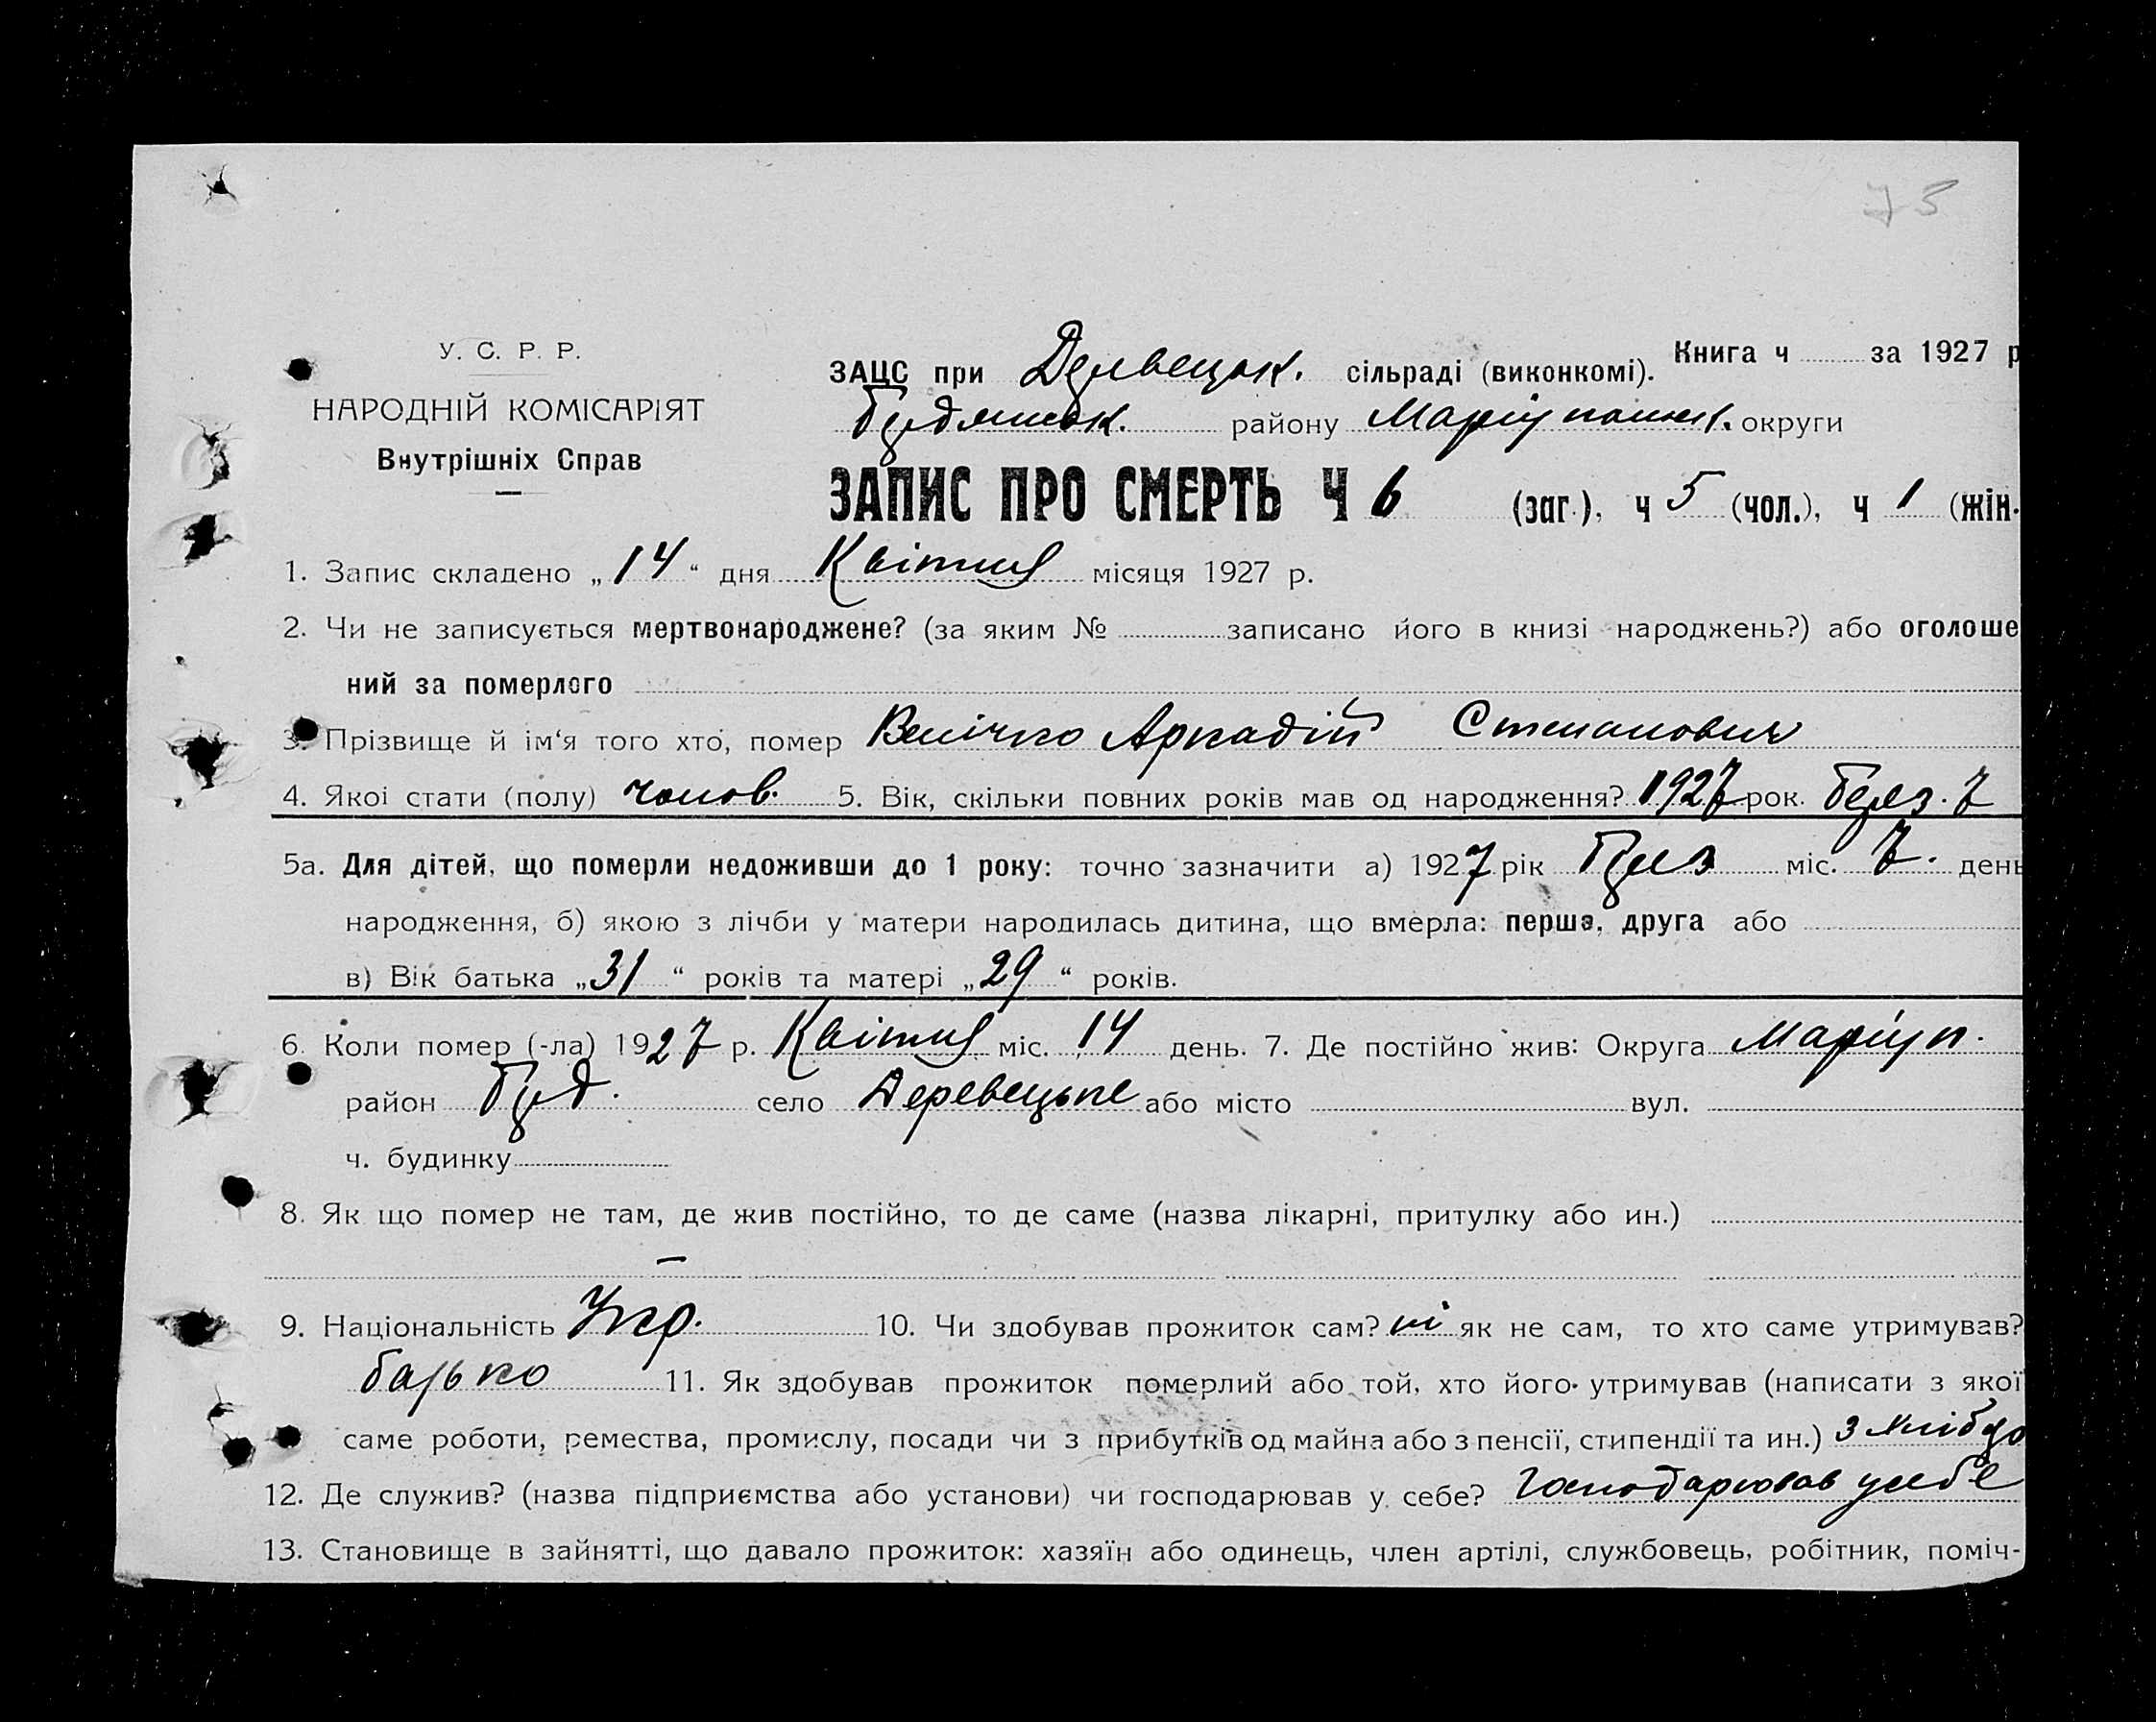 73
У. С. Р. Р.
НАРОДНІЙ КОМІСАРІЯТ
Внутрішніх Справ
Книга ч за 1927 р
ЗАЦС при сільраді (виконкомі).
району округи
ЗАПИС ПРО СМЕРТЬ Ч 6 (заг.), ч 5 (чол.), ч 1 (жін.
1. Запис складено „14“ дня Квітня місяця 1927 р.
2. Чи не записується мертвонароджене? (за яким № записано його в книзі народжень?) або оголоше
ний за померлого
3. Прізвище й ім‘я того хто, помер Велічко Аркадій Степанович
4. Якоі стати (полу) чолов. 5. Вік, скільки повних років мав од народження? 1927 рок. Берез. 7
5а. Для дітей, що померли недоживши до 1 року: точно зазначити а) 1927 рік Берез міс. 7. день
народження, б) якою з лічби у матери народилась дитина, що вмерла: перша, друга або
в) Вік батька „31“ років та матері „29“ років.
6. Коли помер (-ла) 1927 р. Квітня міс. 14 день. 7. Де постійно жив: Округа Маріуп.
район Буд. село Деревецьке або місто вул.
ч. будинку
8. Як що помер не там, де жив постійно, то де саме (назва лікарні, притулку або ин.)
–
9. Національність Укр. 10. Чи здобував прожиток сам? ні як не сам, то хто саме утримував?
батько 11. Як здобував прожиток померлий або той, хто його утримував (написати з якої
саме роботи, ремества, промислу, посади чи з прибутків од майна або з пенсії, стипендії та ин.) З хлібро
12. Де служив? (назва підприємства або установи) чи господарював у себе? господарював у себе
13. Становище в зайнятті, що давало прожиток: хазяїн або одинець, член артілі, службовець, робітник, поміч-